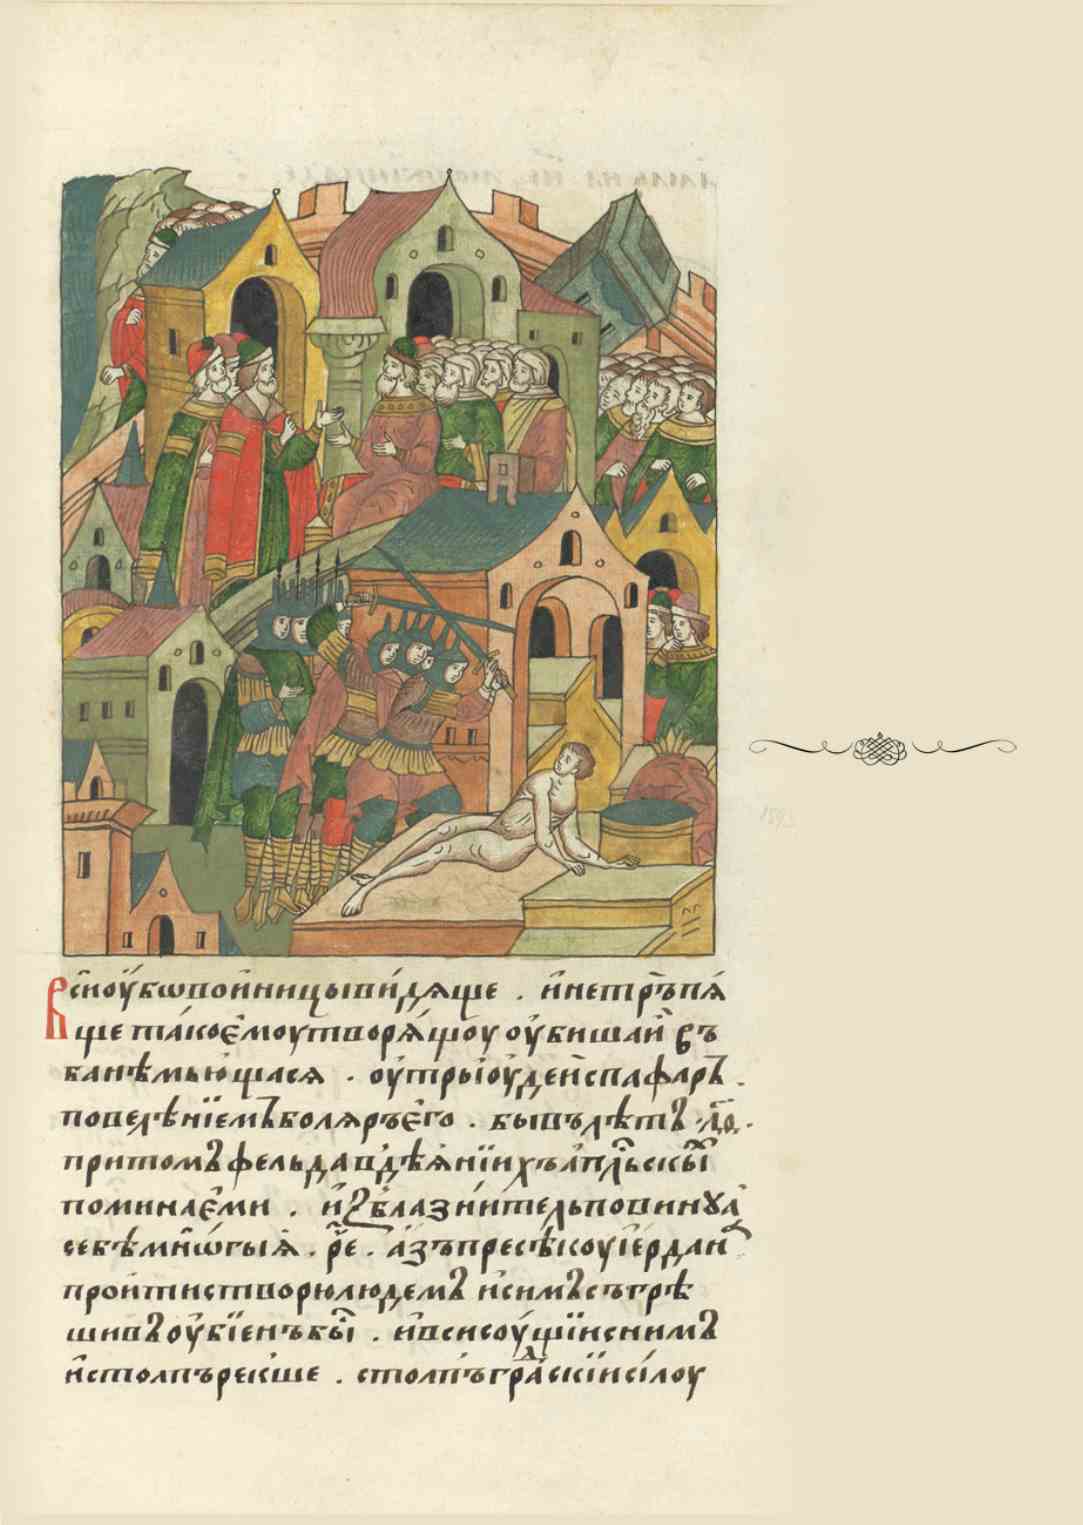 Вси оу҆бѡ вои́ници ви́дѧще . и҆ нетръпѧ́
ще та́ко є҆моу творѧ́щоу оу҆биша и҆ въ
ба́нѣ мьющасѧ . оу҆трьі оу҆де и҆ спафаръ .
повелѣнїемъ болѧръ є҆го . бывъ лѣтъ
при томъ фельда в дѣѧнїихъ апⷭ҇льскыⷯ
поминаєми . и҆ блазнитель повинꙋѧ
себѣ мнѡгыѧ . рⷱ҇е . а҆зъ пресѣкоу і҆ерданъ
проити створю людемъ и҆ симъ съгрѣ
шивъ оу҆бїенъ быⷭ҇ . и҆ вси соу҆щїи с нимъ
и҆ столпъ рекше . столпъ граⷣскїи силоу